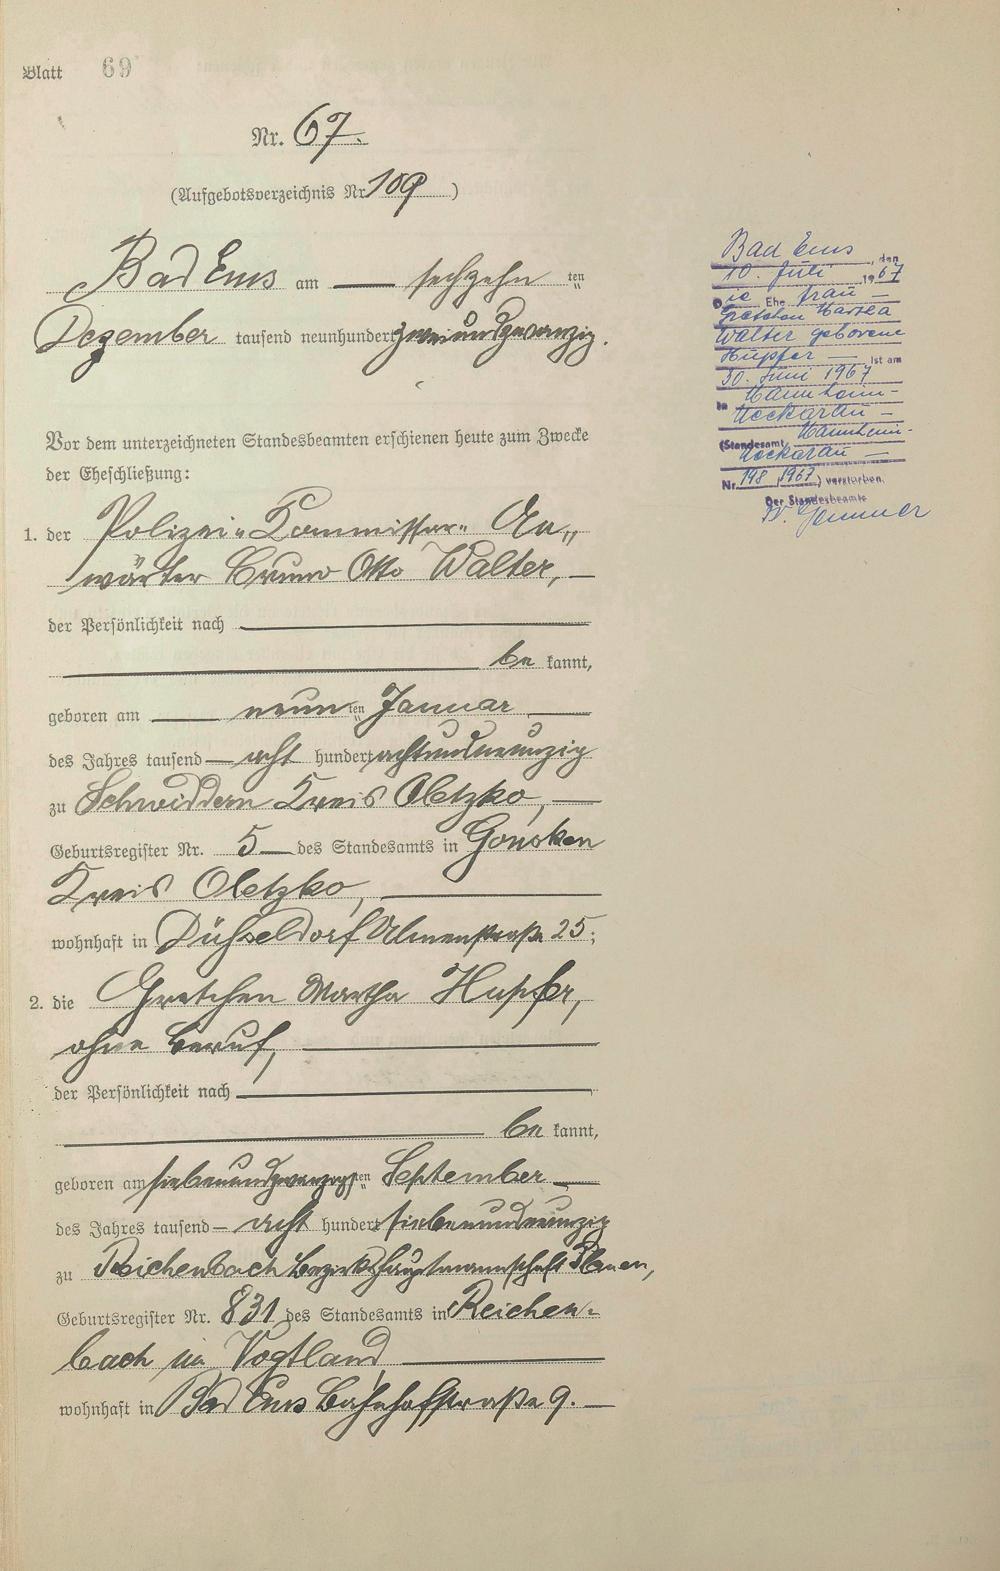 Blatt 69
Nr. 67.
(Aufgebotsverzeichnis Nr 109)
Bad Ems am — sechzehn ten
Dezember tausend neunhundert zweiundzwanzig.
Vor dem unterzeichneten Standesbeamten erschienen heute zum Zwecke
der Eheschließung:
1. der Polizei-Commissar-An„
wärter Bruno Otto Walter, —
der Persönlichkeit nach —
— be kannt,
geboren am — neun ten Januar —
des Jahres tausend — acht hundert achtundneunzig
zu Schwiddern Kreis Oletzko, —
Geburtsregister Nr. 5 — des Standesamts in Gonsken
Kreis Oletzko, —
wohnhaft in Düsseldorf Ulmenstraße 25;
2. die Gretchen Martha Hupfer,
ohne Beruf, —
der Persönlichkeit nach —
— be kannt,
geboren am siebenundzwanzigsten September —
des Jahres tausend — acht hundert siebenundneunzig
zu Reichenbach Bezirkshauptmannschaft Plauen,
Geburtsregister Nr. 831 des Standesamts in Reichen-
bach im Vogtland, —
wohnhaft in Bad Ems Bahnhofstraße 9. —
Bad Ems, den
10. Juli 1967
Die Ehe frau —
Gretchen Martha
Walter geborene
Hupfer — ist am
30. Juni 1967
in Mannheim-
Neckarau —
(Standesamt Mannheim-
Neckarau —
Nr. 198/1967) verstorben.
Der Standesbeamte